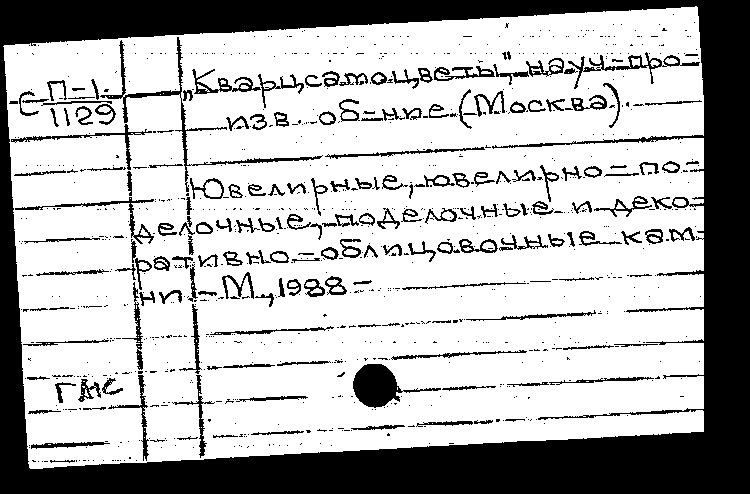 С П-1.
1129
„Кварцсамоцветы", науч-про-
изв. об-ние (Москва).
Ювелирные, ювелирно-по-
делочные, поделочные и деко-
ративно-облицовочные кам-
ни.-М., 1988-